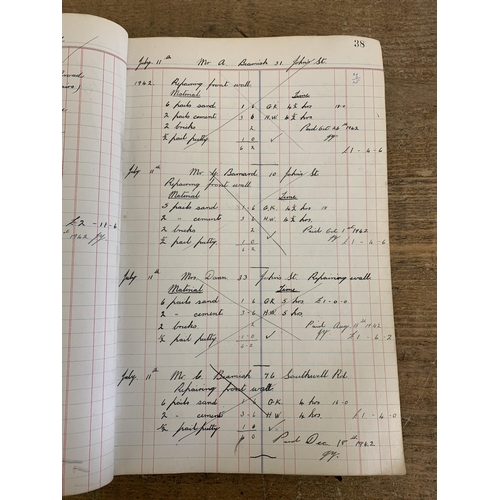 38
July 11th Mr A Beamish 31 John's St.
1942. Repairing front wall.
Material Time
6 pails sand 1 6 G.K. 4½ hrs 18-0
2 pails cement 3 6 H.W. 4½ hrs
2 bricks 2 Paid Oct 26th 1942
½ pail putty 1 0 ✓
6 2 £1-4-6
July 11th Mr G Barnard 10 John's St.
Repairing front wall.
Material Time
5 pails sand 1-6 G.K. 4½ hrs 18
2 " cement 3-6 H.W. 4½ hrs.
2 bricks 2 Paid Oct 1st 1942
½ pail putty 1 0 ✓ £1-4-6
6 2
July 11th Mrs Dann 33 John's St. Repairing wall.
Material Time
6 pails sand 1 6 G.K. 5 hrs £1-0-0
2 " cement 3-6 H.W. 5 hrs.
2 bricks 2 Paid Aug 11th 1942
½ pail putty 1-0 ✓ £1-6-2
6-2
July 11th Mr C. Beamish 76 Southwell Rd.
Repairing front wall.
6 pails sand 1 6 G.K. 4 hrs 16-0
2 " cement 3-6 H.W. 4 hrs. £1-4-0
½ pail putty 1 0 ✓
0 Paid Dec 18th 1942
£2-11-6
1942